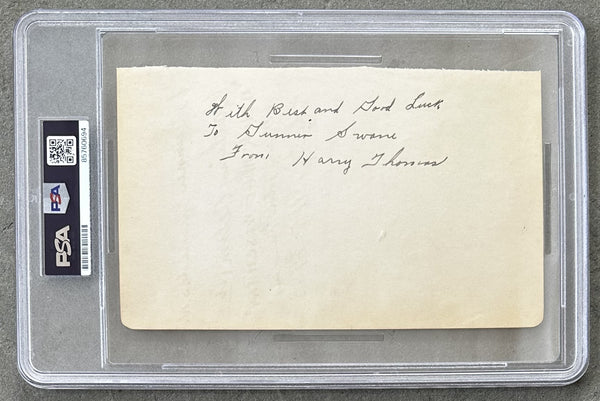 With Best and Good Luck
To Gunnir Swane
From Harry Thomas
PSA
PSA
85760694